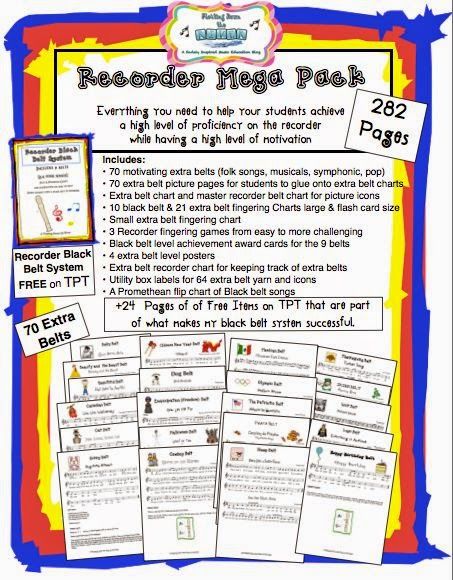 Floating Down the
River
A Kodaly Inspired Music Education Blog
Recorder Mega Pack
Everything you need to help your students achieve
a high level of proficiency on the recorder
while having a high level of motivation
282
Pages
Recorder Black
Belt System
Includes:
• 70 motivating extra belts (folk songs, musicals, symphonic, pop)
• 70 extra belt picture pages for students to glue onto extra belt charts
• Extra belt chart and master recorder belt chart for picture icons
• 10 black belt & 21 extra belt fingering Charts large & flash card size
• Small extra belt fingering chart
• 3 Recorder fingering games from easy to more challenging
• Black belt level achievement award cards for the 9 belts
• 4 extra belt level posters
• Extra belt recorder chart for keeping track of extra belts
• Utility box labels for 64 extra belt yarn and icons
• A Promethean flip chart of Black belt songs
Recorder Black
Belt System
FREE on TPT
+24 Pages of of Free Items on TPT that are part
of what makes my black belt system successful.
70 Extra
Belts
Chinese New Year Belt
Mexican Belt
Thanksgiving Belt
Beauty and the Beast Belt
Clog Belt
Olympic Belt
Canadian Belt
Emancipation (Freedom) Belt
The Patriotic Belt
Cat Belt
Halloween Belt
Cowboy Belt
Sheep Belt
Happy Birthday Belt